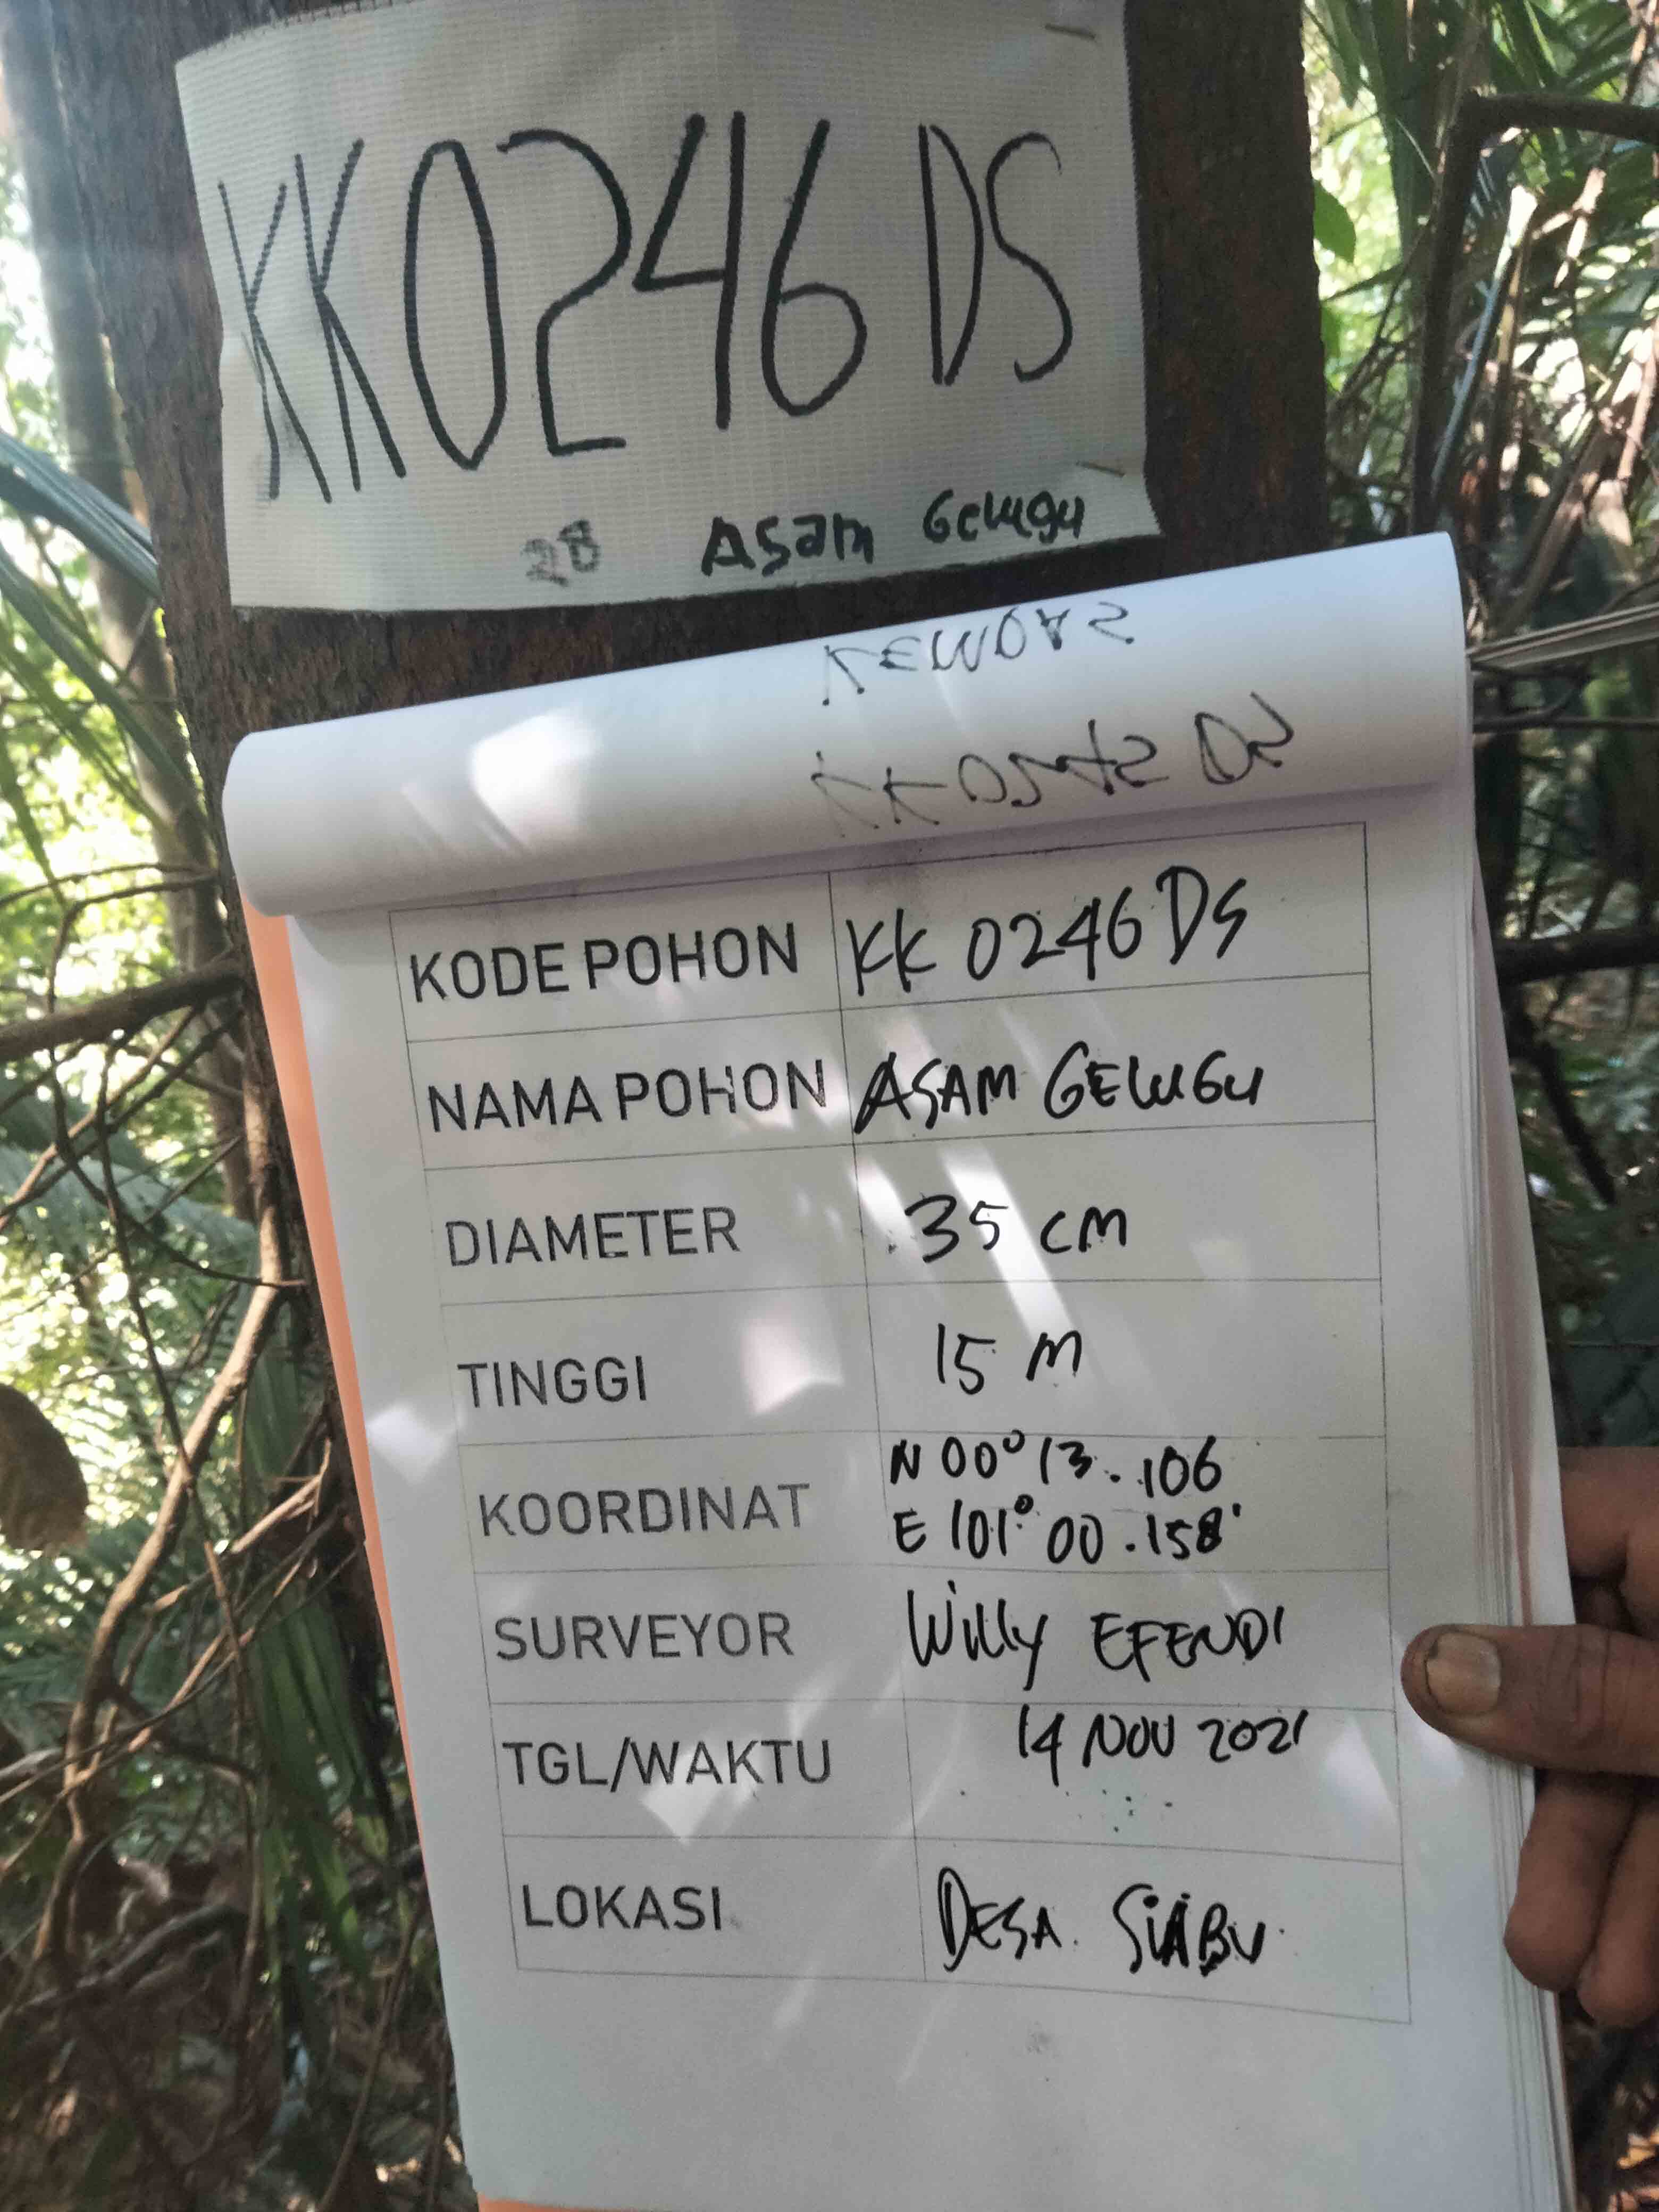 KK0246 DS
28 Asam Gelugu
KEMDAS
KODE POHON KK 0246 DS
NAMA POHON ASAM GELUGU
DIAMETER 35 CM
TINGGI 15 M
KOORDINAT N 00° 13. 106
E 101° 00. 158'
SURVEYOR Willy EFENDI
TGL/WAKTU 14 NOV 2021
LOKASI DESA. SIABU.